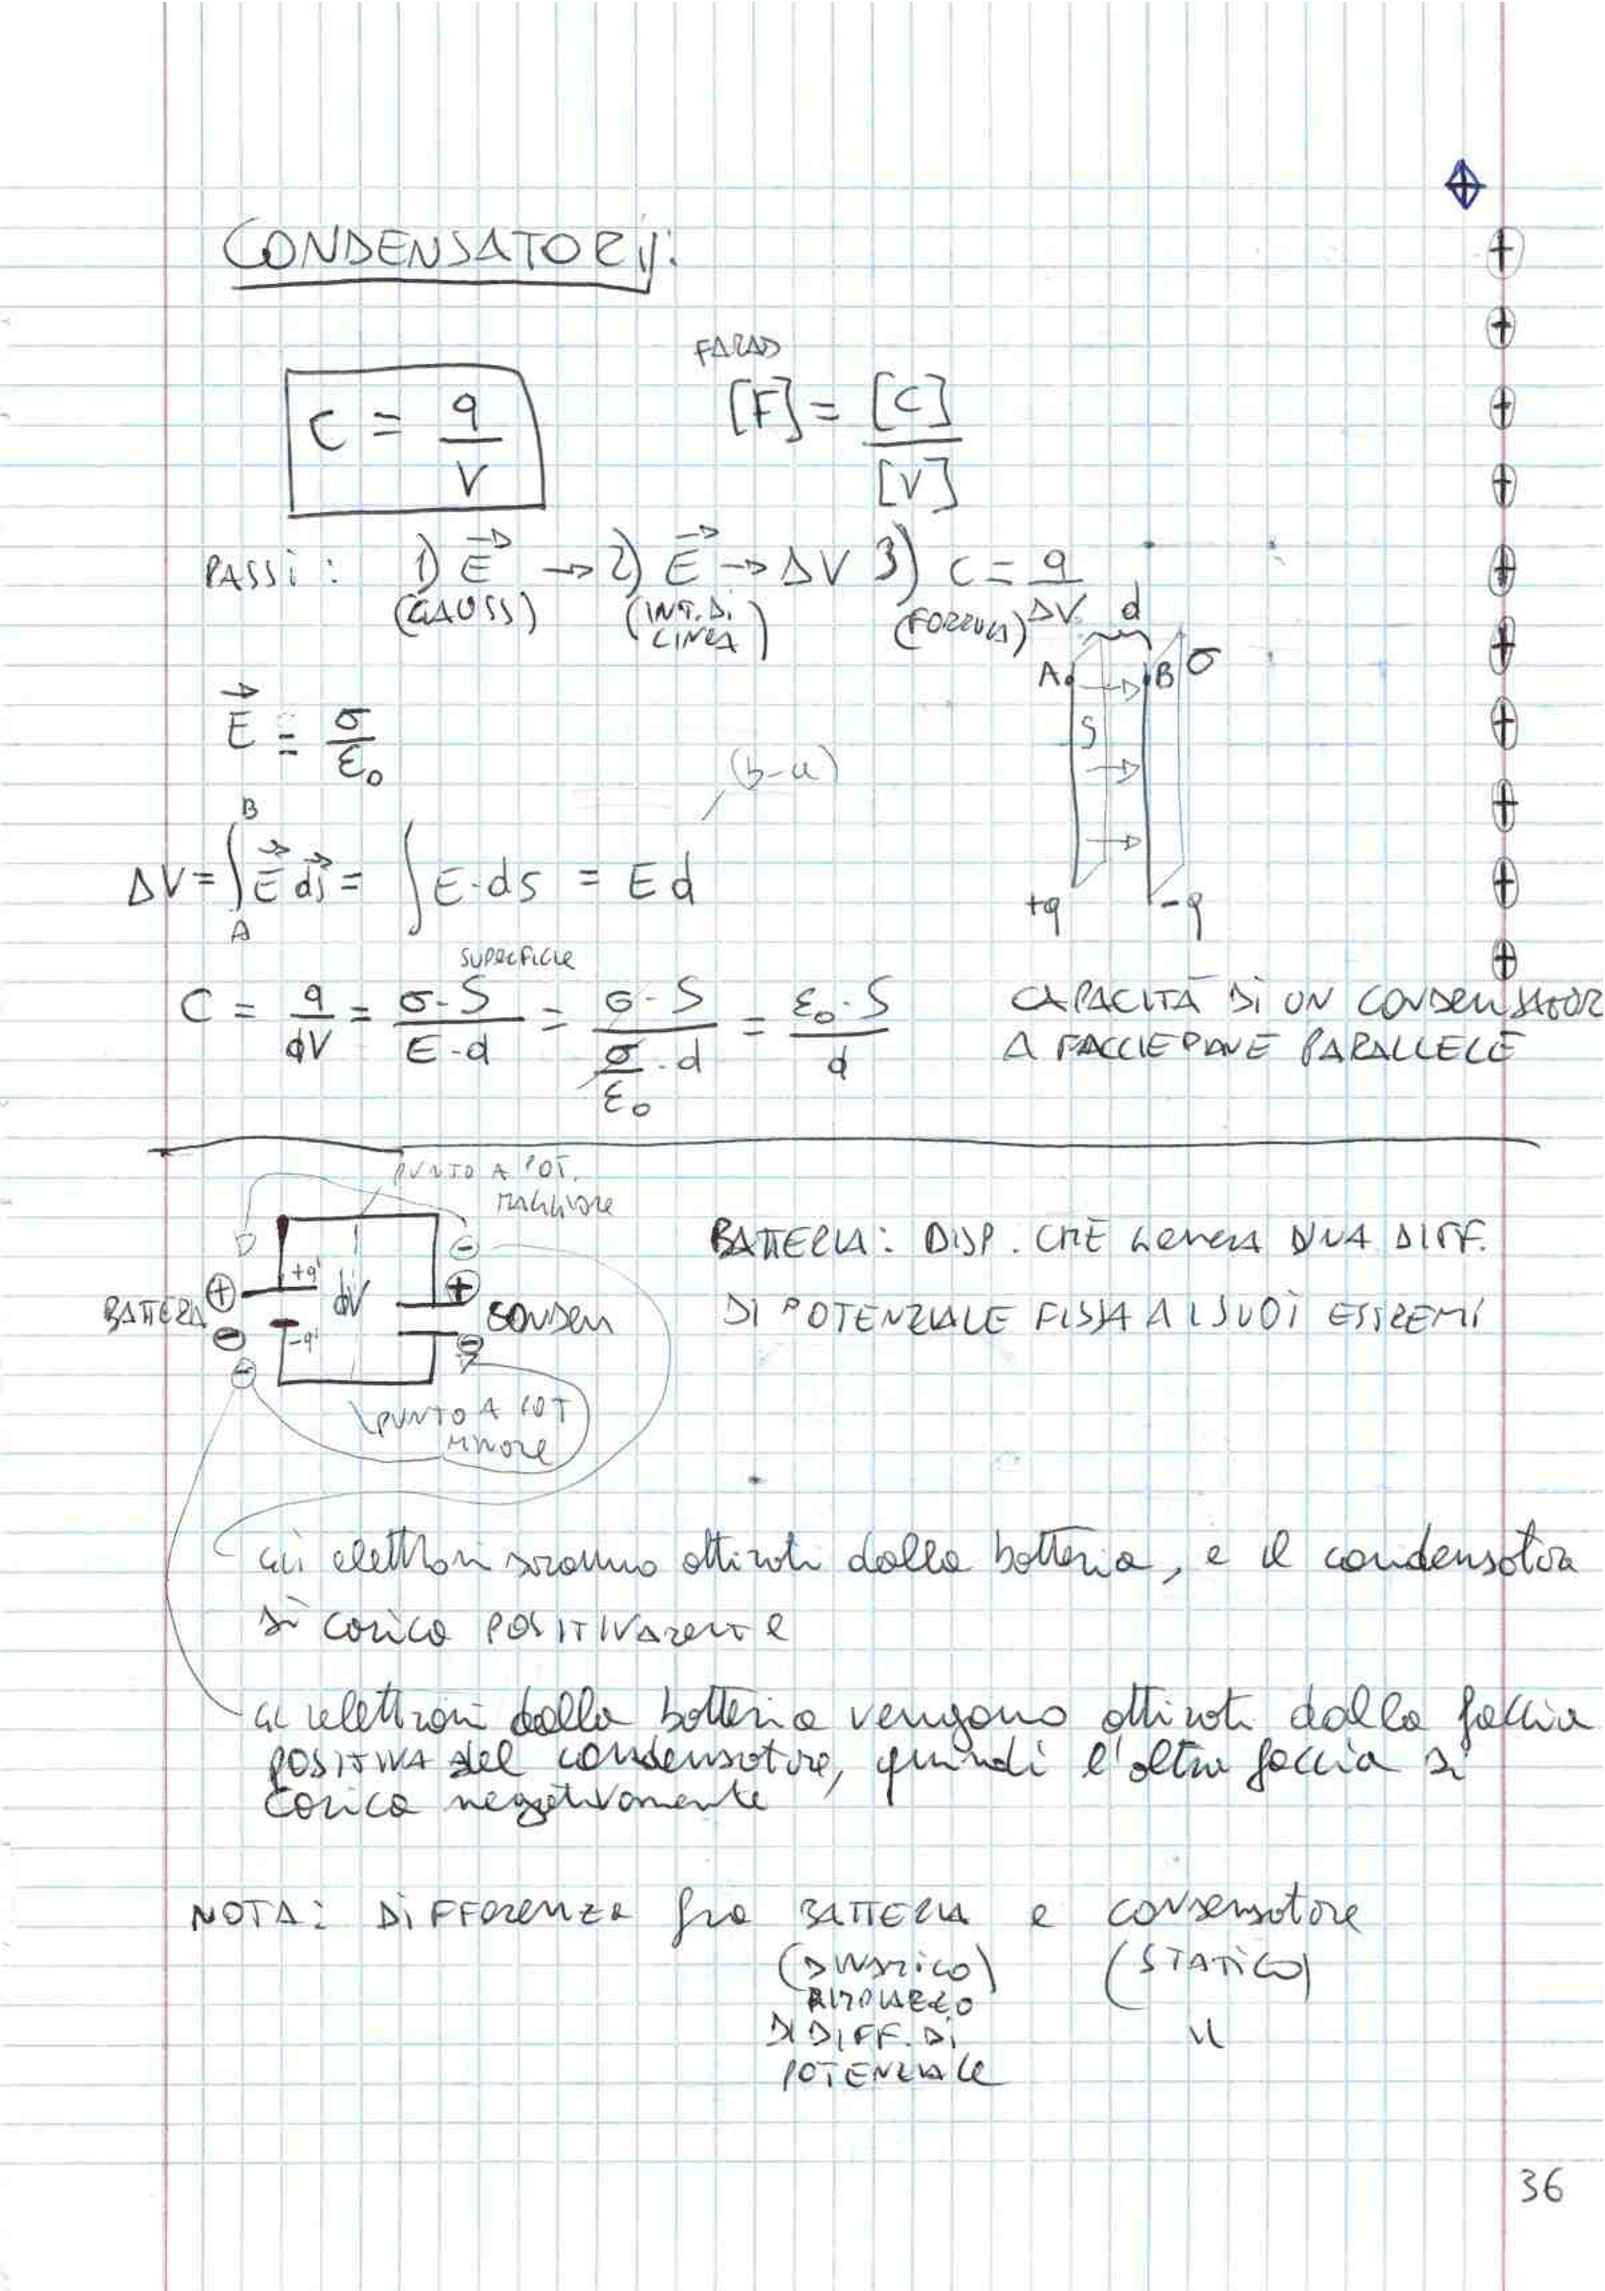 CONDENSATORI:
FARAD
C = q / V
[F] = [C] / [V]
PASSI: 1) E → 2) E → ΔV 3) C = q / ΔV
(GAUSS) (INT. DI LINEA) (FORMULA)
d
A B σ
S
+q -q
E = σ / ε₀
(b-a)
ΔV = ∫ₐᴮ E ds = ∫ E·ds = Ed
SUPERFICIE
C = q / dV = σ·S / E·d = σ·S / (σ/ε₀ · d) = ε₀·S / d
CAPACITÀ DI UN CONDENSATOR
A FACCIE PIANE PARALLELE
PUNTO A POT.
MAGGIORE
BATTERIA: DISP. CHE GENERA UNA DIFF.
DI POTENZIALE FISSA AI SUOI ESTREMI
BATTERIA +q dV CONDEN
-q
PUNTO A POT
MINORE
GLI elettroni saranno attirati dalla batteria, e il condensatore
si carica POSITIVAMENTE
GLI elettroni dalla batteria vengono attirati dalla faccia
POSITIVA del condensatore, quindi l'altra faccia si
carica negativamente
NOTA: DIFFERENZA fra BATTERIA e condensatore
(DINAMICO) (STATICO)
RIMPIAZZO
DI DIFF. DI
POTENZIALE
36